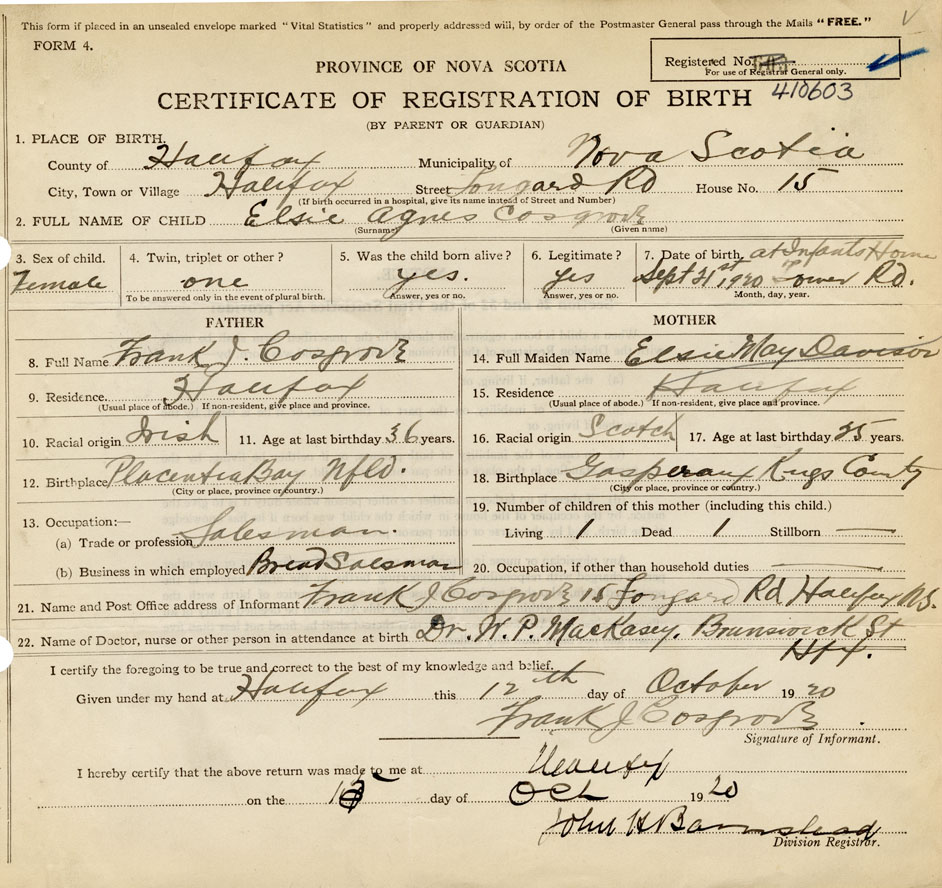 This form if placed in an unsealed envelope marked "Vital Statistics" and properly addressed will, by order of the Postmaster General pass through the Mails "FREE."
FORM 4.
Registered No.
For use of Registrar General only.
410603
PROVINCE OF NOVA SCOTIA
CERTIFICATE OF REGISTRATION OF BIRTH
(BY PARENT OR GUARDIAN)
1. PLACE OF BIRTH.
County of Halifax Municipality of Nova Scotia
City, Town or Village Halifax Street Rd House No. 15
(If birth occurred in a hospital, give its name instead of Street and Number)
2. FULL NAME OF CHILD Elsie Agnes Cosgrove
(Surname) (Given name)
3. Sex of child. 4. Twin, triplet or other? 5. Was the child born alive? 6. Legitimate? 7. Date of birth, at Infants Home
Female one yes. yes Sept 21st 1920 in Tower Rd.
To be answered only in the event of plural birth. Answer, yes or no. Answer, yes or no. Month, day, year.
FATHER
8. Full Name Frank J. Cosgrove
9. Residence. Halifax
(Usual place of abode.) If non-resident, give place and province.
10. Racial origin Irish 11. Age at last birthday 36 years.
12. Birthplace Placentia Bay Nfld.
(City or place, province or country.)
13. Occupation:—
(a) Trade or profession Salesman.
(b) Business in which employed Bread Salesman
MOTHER
14. Full Maiden Name Elsie May Davison
15. Residence Halifax
(Usual place of abode.) If non-resident, give place and province.
16. Racial origin Scotch 17. Age at last birthday 25 years.
18. Birthplace Gasperaux Kings County
(City or place, province or country.)
19. Number of children of this mother (including this child.)
Living 1 Dead 1 Stillborn
20. Occupation, if other than household duties
21. Name and Post Office address of Informant Frank J Cosgrove 15 Rd Halifax N.S.
22. Name of Doctor, nurse or other person in attendance at birth Dr. W. P. MacKasey. Brunswick St
Hfx.
I certify the foregoing to be true and correct to the best of my knowledge and belief.
Given under my hand at Halifax this 12th day of October 1920
Frank J Cosgrove
Signature of Informant.
I hereby certify that the above return was made to me at Halifax
on the day of Oct 1920
John H Barnstead
Division Registrar.